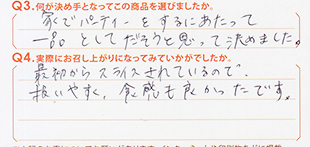 Q3.何が決め手となってこの商品を選びましたか。
家でパーティーをするにあたって
一品としてだそうと思って決めました。
Q4.実際にお召し上がりになってみていかがでしたか。
最初からスライスされているので、
扱いやすく、食感も良かったです。